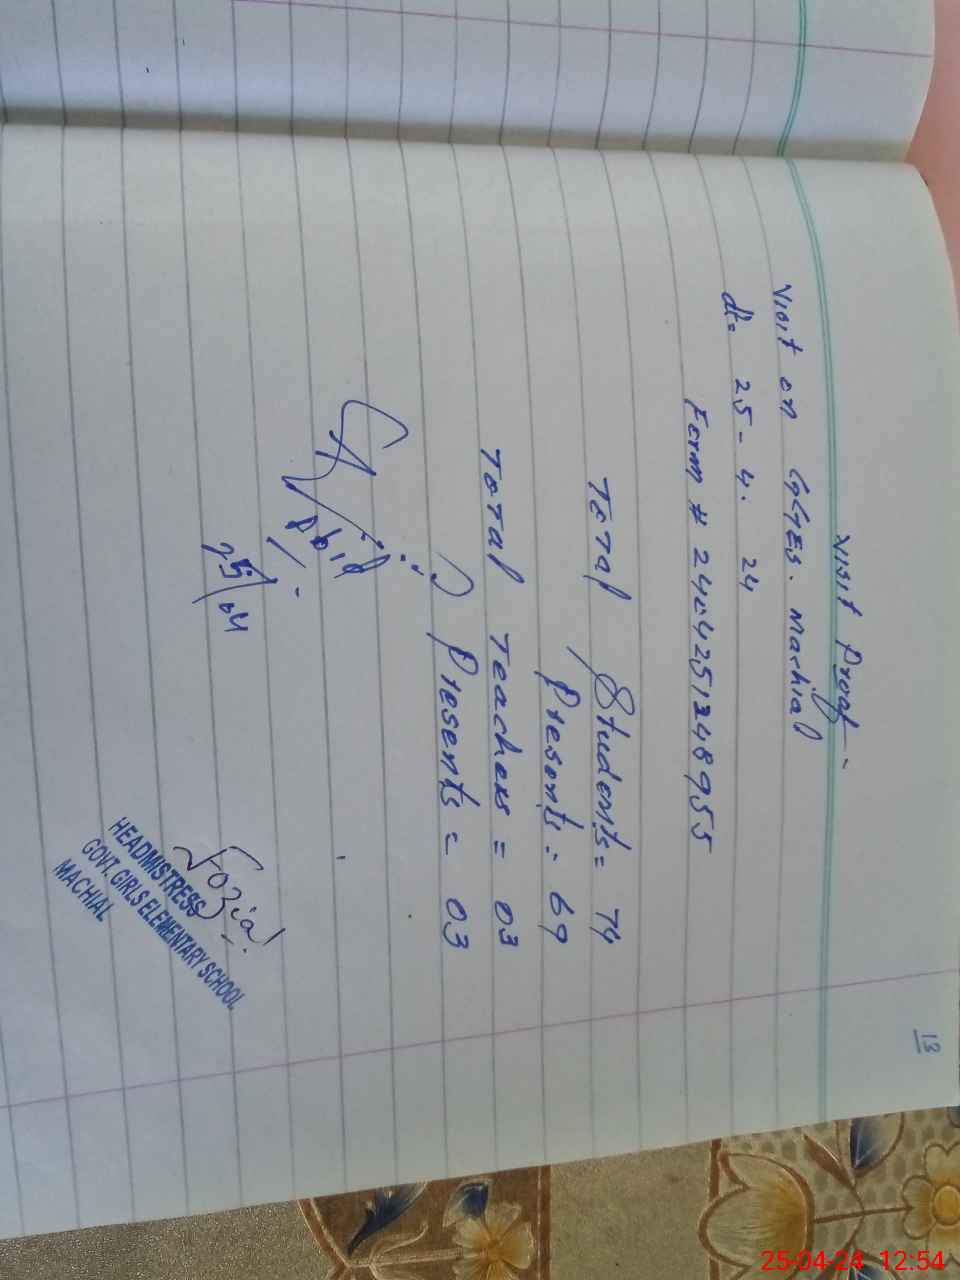 13
Visit Proof
Visit on GGES. Machial
dt= 25-4.24
Form # 240425124 8955
Total Students= 74
Presents= 69
Total Teachers = 03
Presents= 03
Abid
25/04
Fozia
HEADMISTRESS
GOVT. GIRLS ELEMENTARY SCHOOL
MACHIAL
25-04-24 12:54